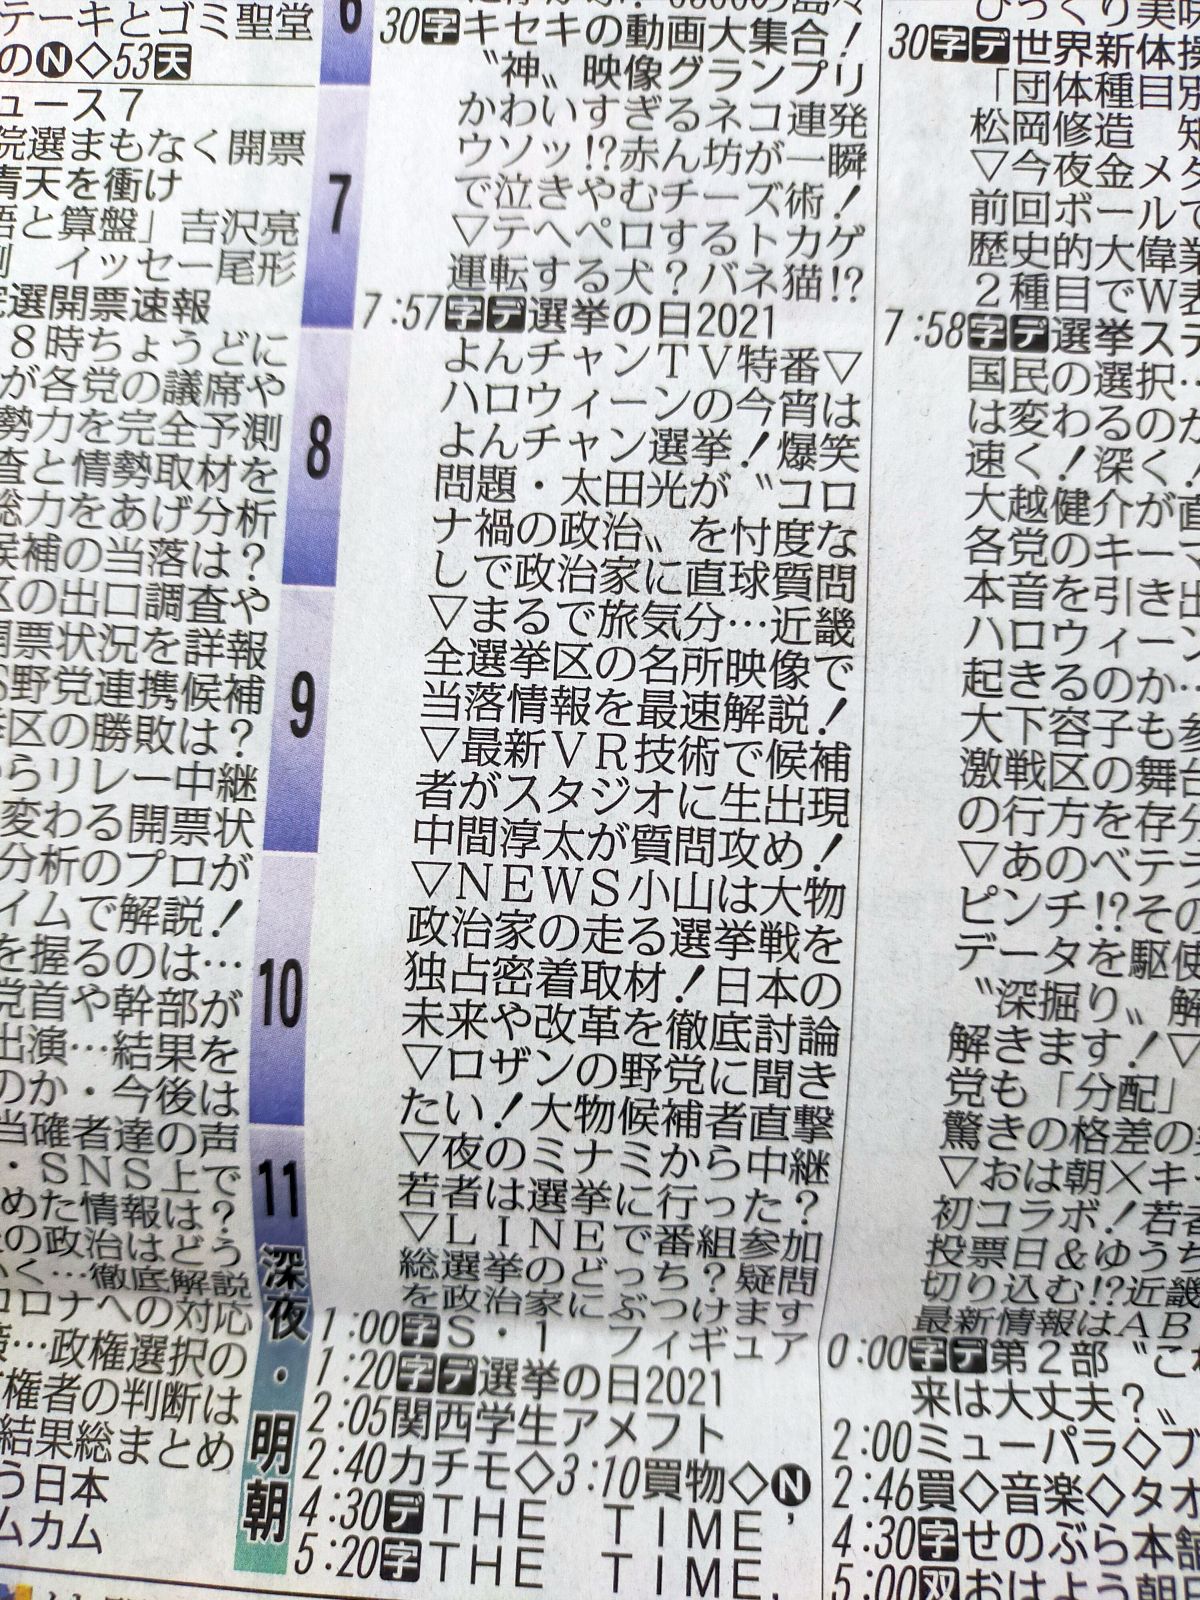 テーキとゴミ聖堂
のN◇53天
ュース7
院選まもなく開票
青天を衝け
語と算盤」吉沢亮
イッセー尾形
選開票速報
8時ちょうどに
が各党の議席や
勢力を完全予測
査と情勢取材を
総力をあげ分析
候補の当落は？
区の出口調査や
開票状況を詳報
野党連携候補
区の勝敗は？
らリレー中継
変わる開票状
分析のプロが
イムで解説！
を握るのは…
党首や幹部が
出演…結果を
のか・今後は
当確者達の声
・SNS上で
めた情報は？
の政治はどう
く…徹底解説
コロナへの対応
…政権選択の
権者の判断は
結果総まとめ
う日本
ムカム
6
7
8
9
10
11
深夜・明朝
30字キセキの動画大集合！
〝神〟映像グランプリ
かわいすぎるネコ連発
ウソッ!?赤ん坊が一瞬
で泣きやむチーズ術！
▽テヘペロするトカゲ
運転する犬？バネ猫!?
7:57字デ選挙の日2021
よんチャンTV特番▽
ハロウィーンの今宵は
よんチャン選挙！爆笑
問題・太田光が〝コロ
ナ禍の政治〟を忖度な
しで政治家に直球質問
▽まるで旅気分…近畿
全選挙区の名所映像で
当落情報を最速解説！
▽最新VR技術で候補
者がスタジオに生出現
中間淳太が質問攻め！
▽NEWS小山は大物
政治家の走る選挙戦を
独占密着取材！日本の
未来や改革を徹底討論
▽ロザンの野党に聞き
たい！大物候補者直撃
▽夜のミナミから中継
若者は選挙に行った？
▽LINEで番組参加
総選挙のどっち？疑問
を政治家にぶつけます
1:00字S・1　フィギュア
1:20字デ選挙の日2021
2:05関西学生アメフト
2:40カチモ◇3:10買物◇N
4:30デTHE　TIME'
5:20字THE　TIME,
びっくり美
30字デ世界新体操
「団体種目別
松岡修造　知
▽今夜金メダ
前回ボールで
歴史的大偉業
2種目でW表
7:58字デ選挙ステ
国民の選択…
は変わるのか
速く！深く！
大越健介が直
各党のキーマ
本音を引き出
ハロウィーン
起きるのか…
大下容子も参
激戦区の舞台
の行方を存分
▽あのベテラ
ピンチ!?その
データを駆使
〝深掘り〟解
解きます！▽
党も「分配」
驚きの格差の
▽おは朝×キ
初コラボ！若者
投票日＆ゆうち
切り込む!?近畿
最新情報はAB
0:00字デ第2部〝こ
来は大丈夫？〟
2:00ミューパラ◇ブ
2:46買◇音楽◇タオ
4:30字せのぶら本舗
5:00双おはよう朝日